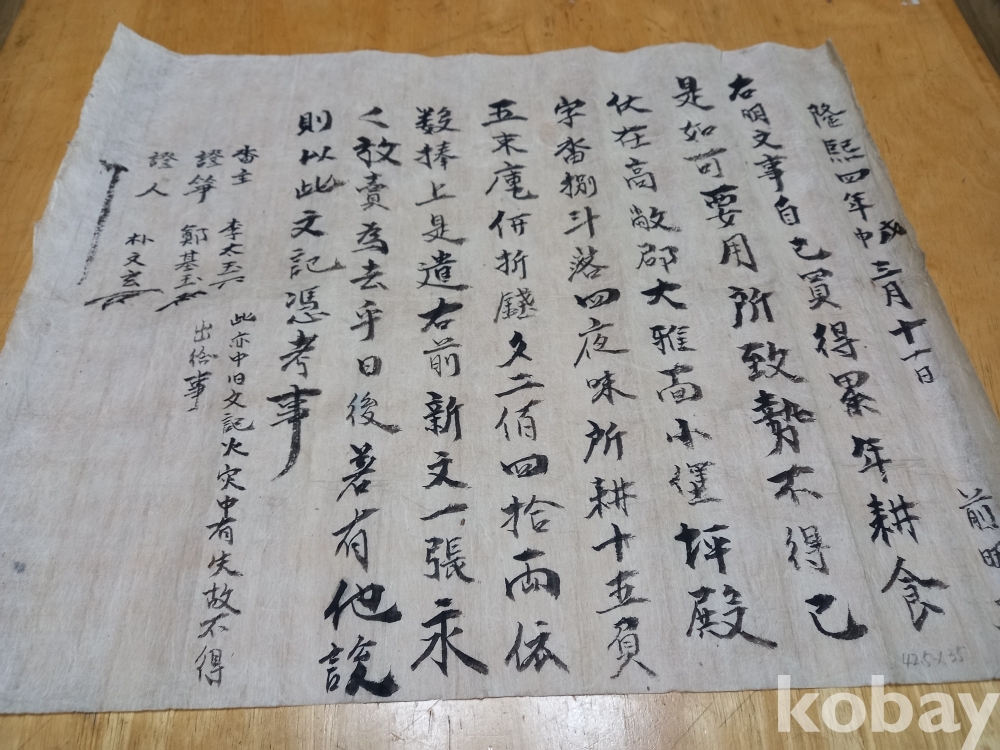 隆熙四年 三月十一日 前明
右明文事自己買得累年耕食
是如可要用所致勢不得已
伏在高敞郡大雅面小 坪殿
字畓捌斗落四夜味所耕十五負
五束庫 折錢文二佰四拾兩依
数捧上是遣右前新文一張永
〻放賣為去乎日後若有他說
則以此文記憑考事
畓主 李太玉
證筆 鄭基玉
證人 朴文玄
此亦中旧文記火灾中有失故不得
出給事
42.5×35
kobay